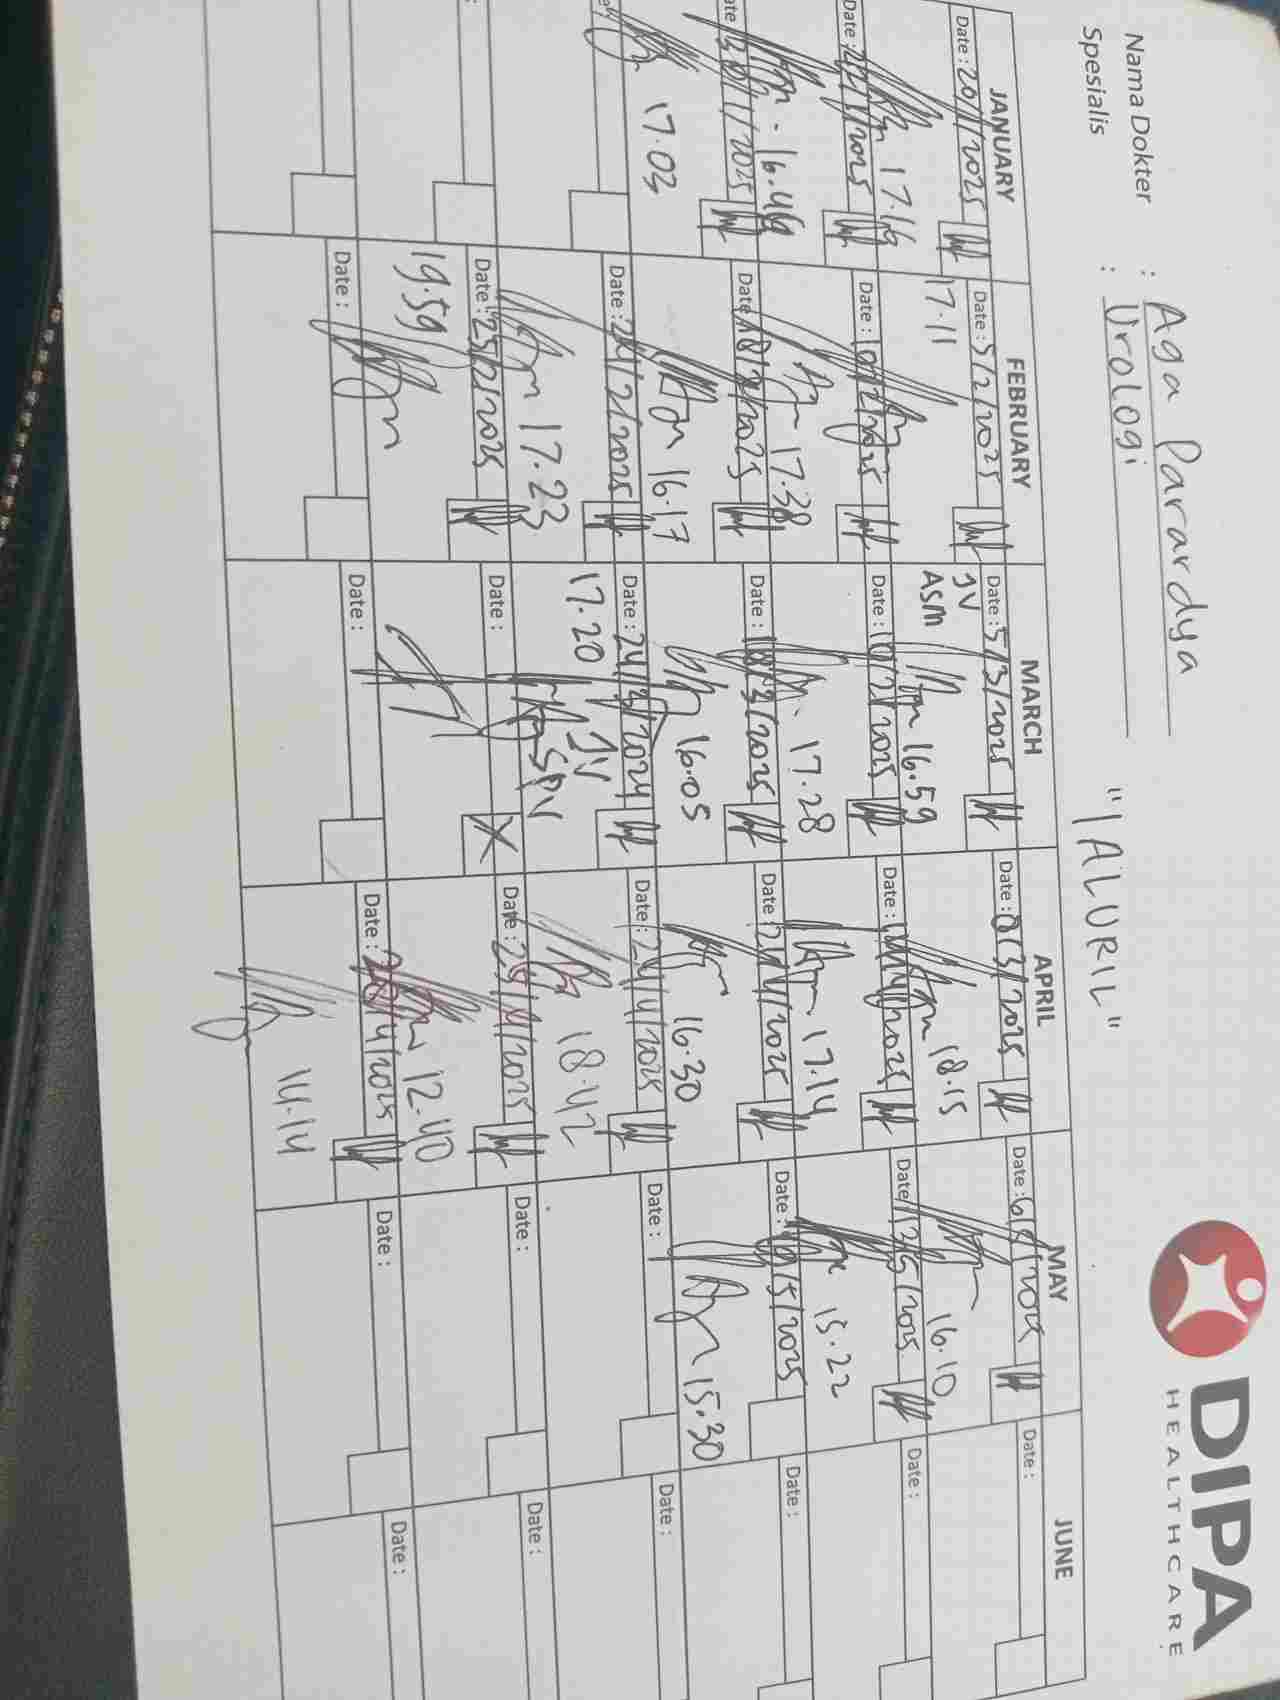 Nama Dokter : Aga Parardya
Spesialis : Urologi
"IALURIL"
DIPA
HEALTHCARE
JANUARY
FEBRUARY
MARCH
APRIL
MAY
JUNE
Date : 20/1/2025
Date : 5/2/2025
Date : 5/3/2025
Date : 8/3/2025
Date : 6/5/2025
Date :
17.19
17.11
JV
ASM
16.59
18.15
16.10
Date : /1/2025
Date : 10/2/2025
Date : 10/2/2025
Date : 14/4/2025
Date : 12/5/2025
Date :
16.49
17.38
17.28
17.14
15.22
Date : 30/1/2025
Date : 18/2/2025
Date : 18/3/2025
Date : 21/4/2025
Date : 19/5/2025
Date :
17.03
16.17
16.05
16.30
15.30
Date : 24/2/2025
Date : 24/3/2024
Date : 24/4/2025
Date :
Date :
17.23
17.20
JV
SPV
18.42
Date : 25/2/2025
Date :
Date : 25/4/2025
Date :
Date :
19.59
12.40
Date :
Date :
Date :
Date : 28/4/2025
Date :
Date :
14.14